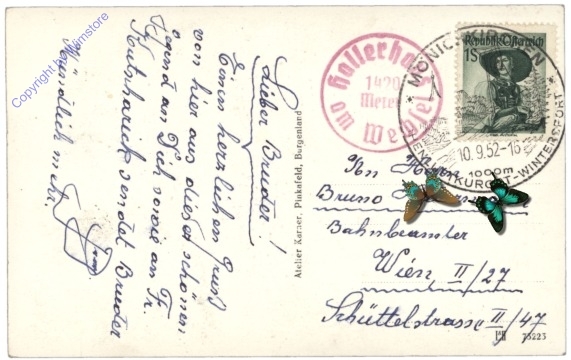 Copyright by Wimstore
Lieber Bruder!
Einen herzlichen Gruß
von hier aus dieser schönen
Gegend an Dich sowie an Fr.
sendet Bruder
Mündlich mehr.
Atelier Karner, Pinkafeld, Burgenland
Hallerhaus
1420
Meter
am Wechsel
Republik Österreich
1S
MÖNICHKIRCHEN
10.9.52-16
1000m
KURORT-WINTERSPORT
An Herrn
Bruno
Bahnbeamter
Wien II/27
Schüttelstrasse II/47
75223